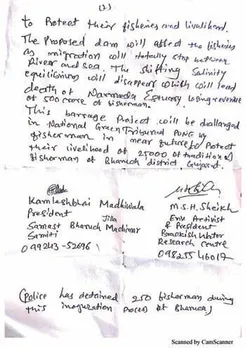 (2)
to Protect their fisheries and livelihood.
The Proposed dam will affect the fisheries
as migration will totally stop between
River and sea. The shifting Salinity
equilibrium will disappear which will lead
death of Narmada Estuary losing revenue
of 500 crore of fisherman.
This barrage Project will be challenged
in National Green Tribunal Pune by
fisherman in near future to Protect
their livelihood of 25000 of traditional
fisherman of Bharuch district Gujarat.
Kamleshbhai Madhiwala
President
Jilla
Samast Bharuch Machimar
Samiti
099243-52696
M.S.H. Sheikh
Env Activist
& President
Brackish Water
Research Centre
098255 46017
(Police has detained 250 fisherman during
this inauguration Process at Bharuch)
Scanned by CamScanner